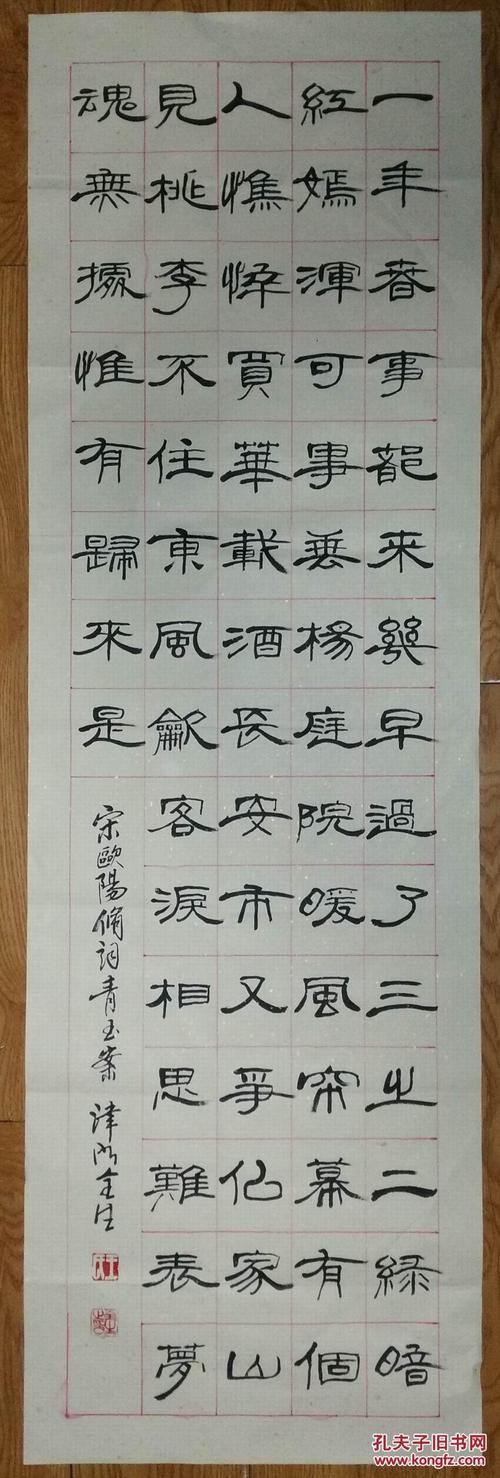 一年春事都来幾早過了三之二緑暗
紅嫣渾可事垂楊庭院暖風帘幕有個
人憔悴買華載酒長安市又爭仙家山
見桃李不住東風歠客淚相思難表夢
魂無據惟有歸來是
宋歐陽脩詞青玉案 津門全生
孔夫子旧书网
www.kongfz.com